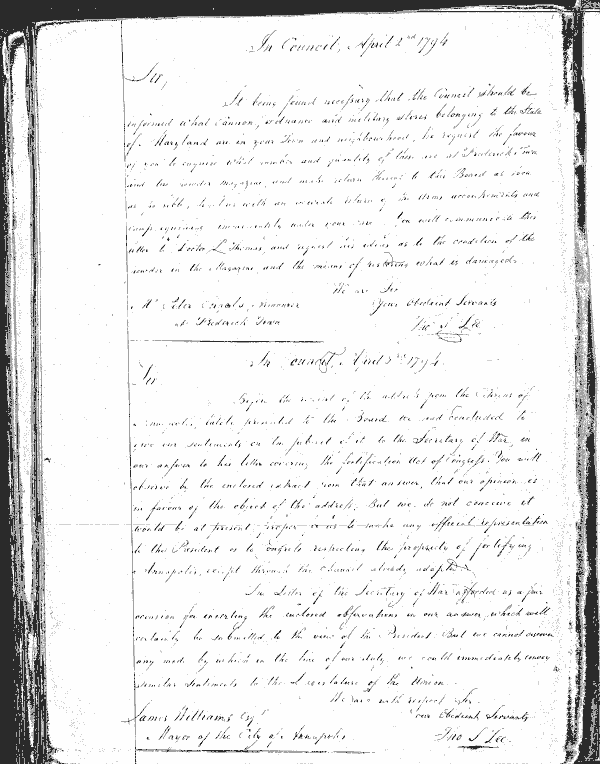 In Council, April 2nd 1794
Sir,
It being found necessary that the Council should be
informed what Cannon, ordnance and military stores belonging to the State
of Maryland are in your Town and neighbourhood, We request the favour
of you to enquire what number and quantity of these are at Frederick Town
and the powder magazine, and make return thereof to this Board as soon
as possible, with an accurate return of the Arms accoutrements and
camp equipage immediately under your care. You will communicate this
letter to Doctor Thomas, and request his ideas as to the condition of the
powder in the Magazine, and the means of restoring what is damaged.
We are Sir
Mr Peter Armourer Your Obedient Servants
at Frederick Town Tho S Lee
In Council, April 1794
Sir
Before the receipt of the address from the Citizens of
Annapolis, lately presented to the Board we had concluded to
give our sentiments on the subject of it to the Secretary of War, in
our answer to his letter covering the fortification Act of Congress. You will
observe by the enclosed extract from that answer, that our opinion is
in favour of the object of the address. But we do not conceive it
would be at present proper in us to make any official representation
to the President or to Congress respecting the propriety of fortifying
Annapolis, except through the channel already adopted.
The Letter of the Secretary of War afforded us a fair
occasion for inserting the enclosed observations in our answer, which will
certainly be submitted to the view of the President. But we cannot
any mode by which in the line of our duty, we could immediately convey
similar sentiments to the Legislature of the Union.
We are with respect Sir
James Williams Esqr your Obedient Servants
Mayor of the City of Annapolis Tho S Lee